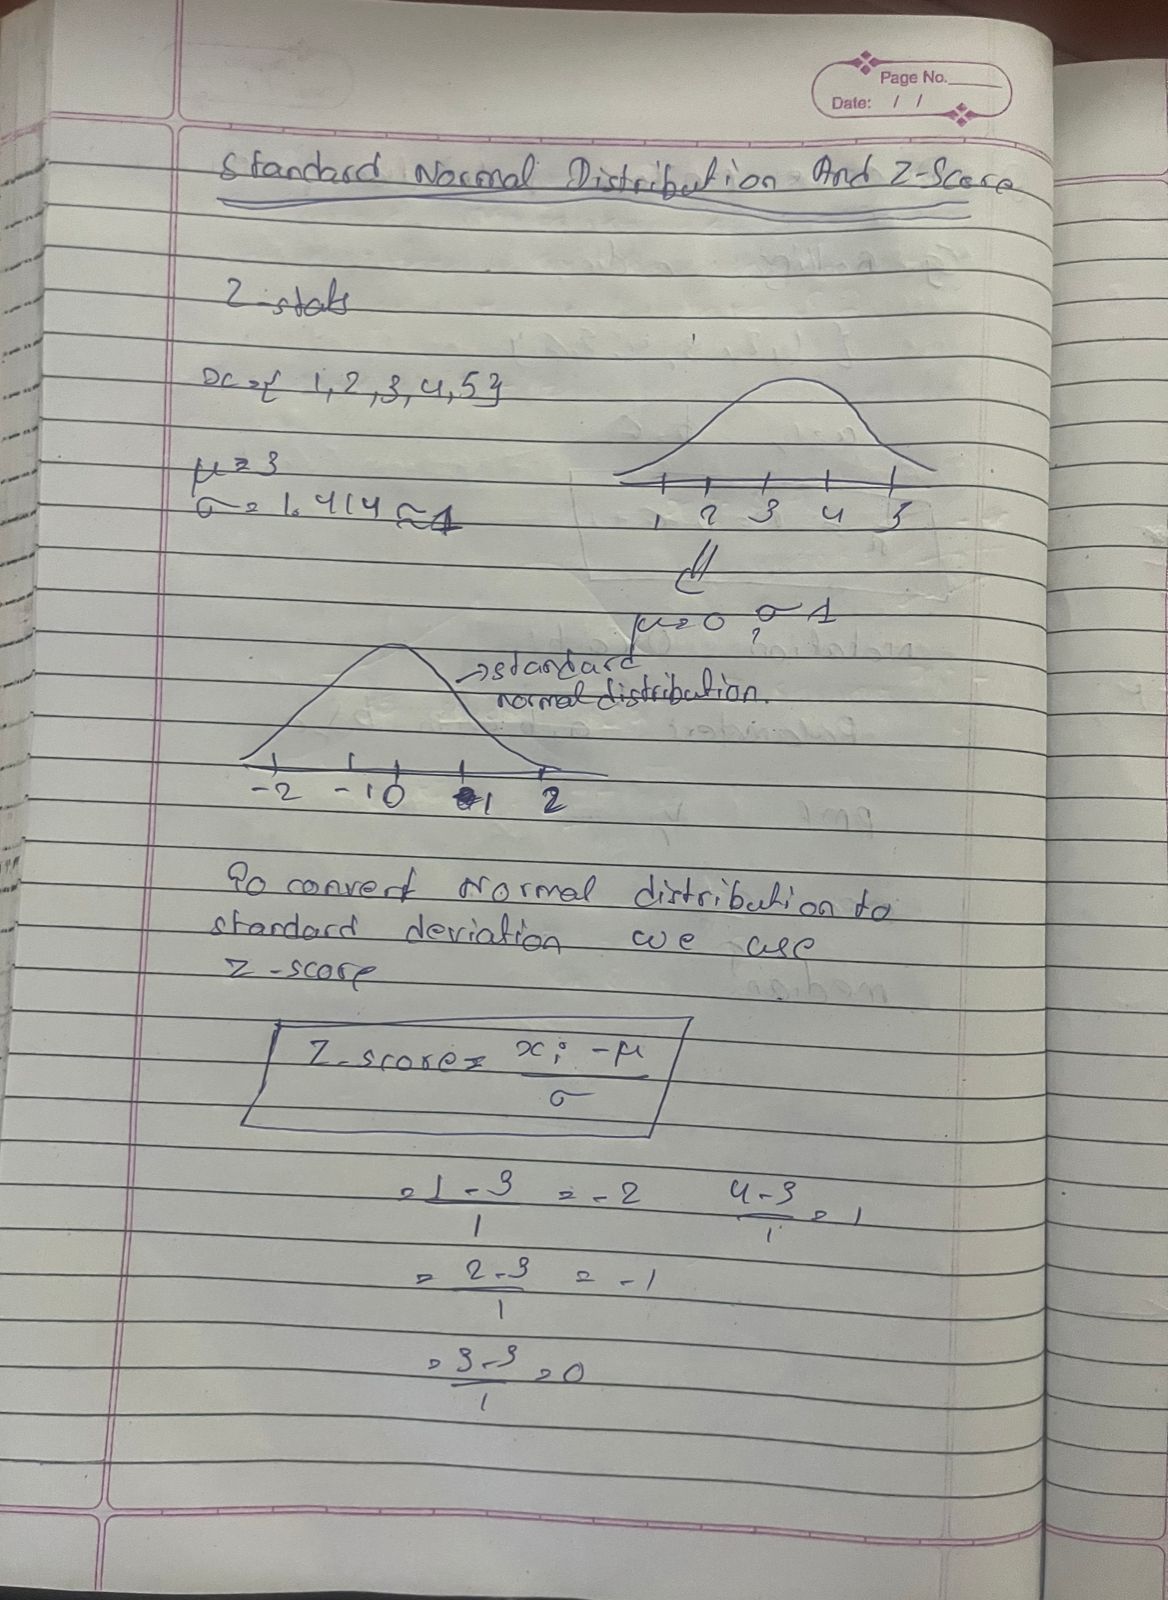 Page No.
Date: / /
Standard Normal Distribution And Z-Score
Z-stats
x={ 1, 2, 3, 4, 5}
μ=3
σ=1.414≈1
1 2 3 4 5
μ=0, σ=1
→standard
normal distribution.
-2 -1 0 1 2
To convert Normal distribution to
standard deviation we use
Z-score
Z-score= xi -μ
σ
= 1 - 3 = -2 4-3 = 1
1 1
= 2-3 = -1
1
= 3-3 = 0
1